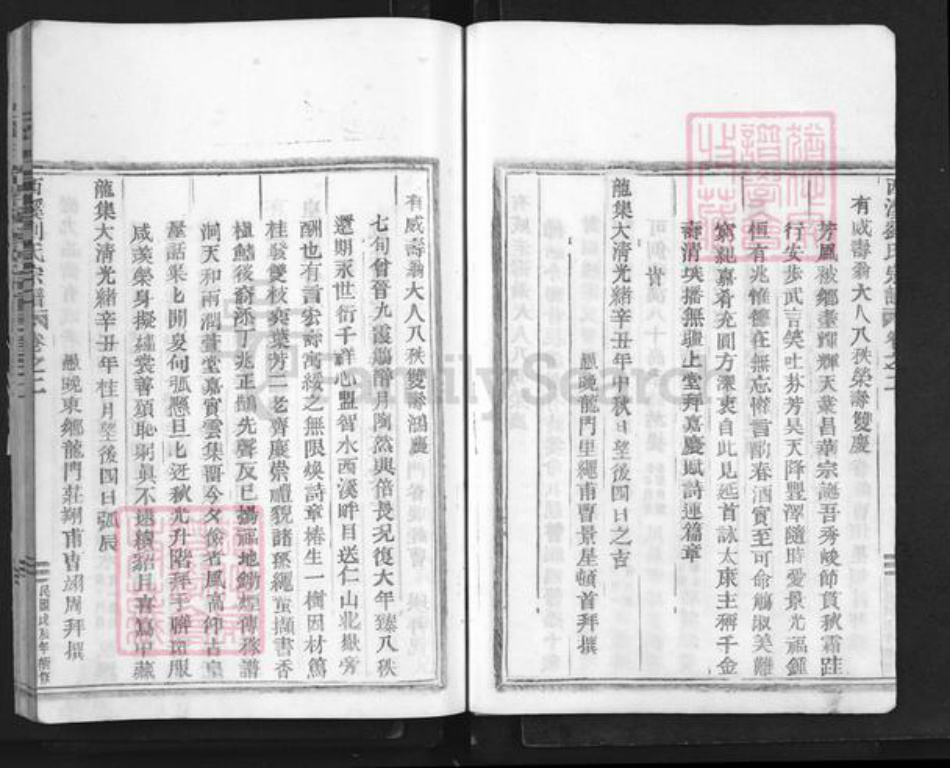 有威壽翁大人八秩榮壽雙慶
芳風被鄉耋輝輝天葉昌華宗誕吾秀峻節貫秋霜跬
行安步武言笑吐芬芳昊天降豐澤隨時愛景光福鍾
恒有兆惟德在無忘惟言酌春酒實至可命觴淑美難
窮紀嘉肴充圓方深衷自此見延首詠太康主稱千金
壽清英播無疆上堂拜嘉慶賦詩連篇章
龍集大清光緒辛丑年中秋日望後四日之吉
愚晚龍門里繩甫曹景星頓首拜撰
有威壽翁大人八秩雙壽鴻慶
七旬曾晉九霞觴醉月陶然興倍長況復大年臻八秩
還期永世衍千祥心盟智水西溪畔目送仁山北嶽旁
酬也有言宏壽寓綏之無限煥詩章椿生一樹因材篤
桂發雙枝奕葉芳二老齊眉崇禮貌諸孫繩蟄擷書香
後裔添丁兆正 先聲反已 福地 傳孫譜
洞天和雨潤萱堂嘉賓雲集 今夕儉者風高仰古皇
話果 開 何 懸旦 近秋光升階拜手聯斑服
咸 榮身擬繡裳善頌恥躬真不 且喜寫中藏
龍集大清光緒辛丑年桂月望後四日弧辰
愚晚東鄉龍門莊翔甫曹翊周拜撰
西溪劉氏宗譜 卷之二
民國戊辰年新修
FamilySearch